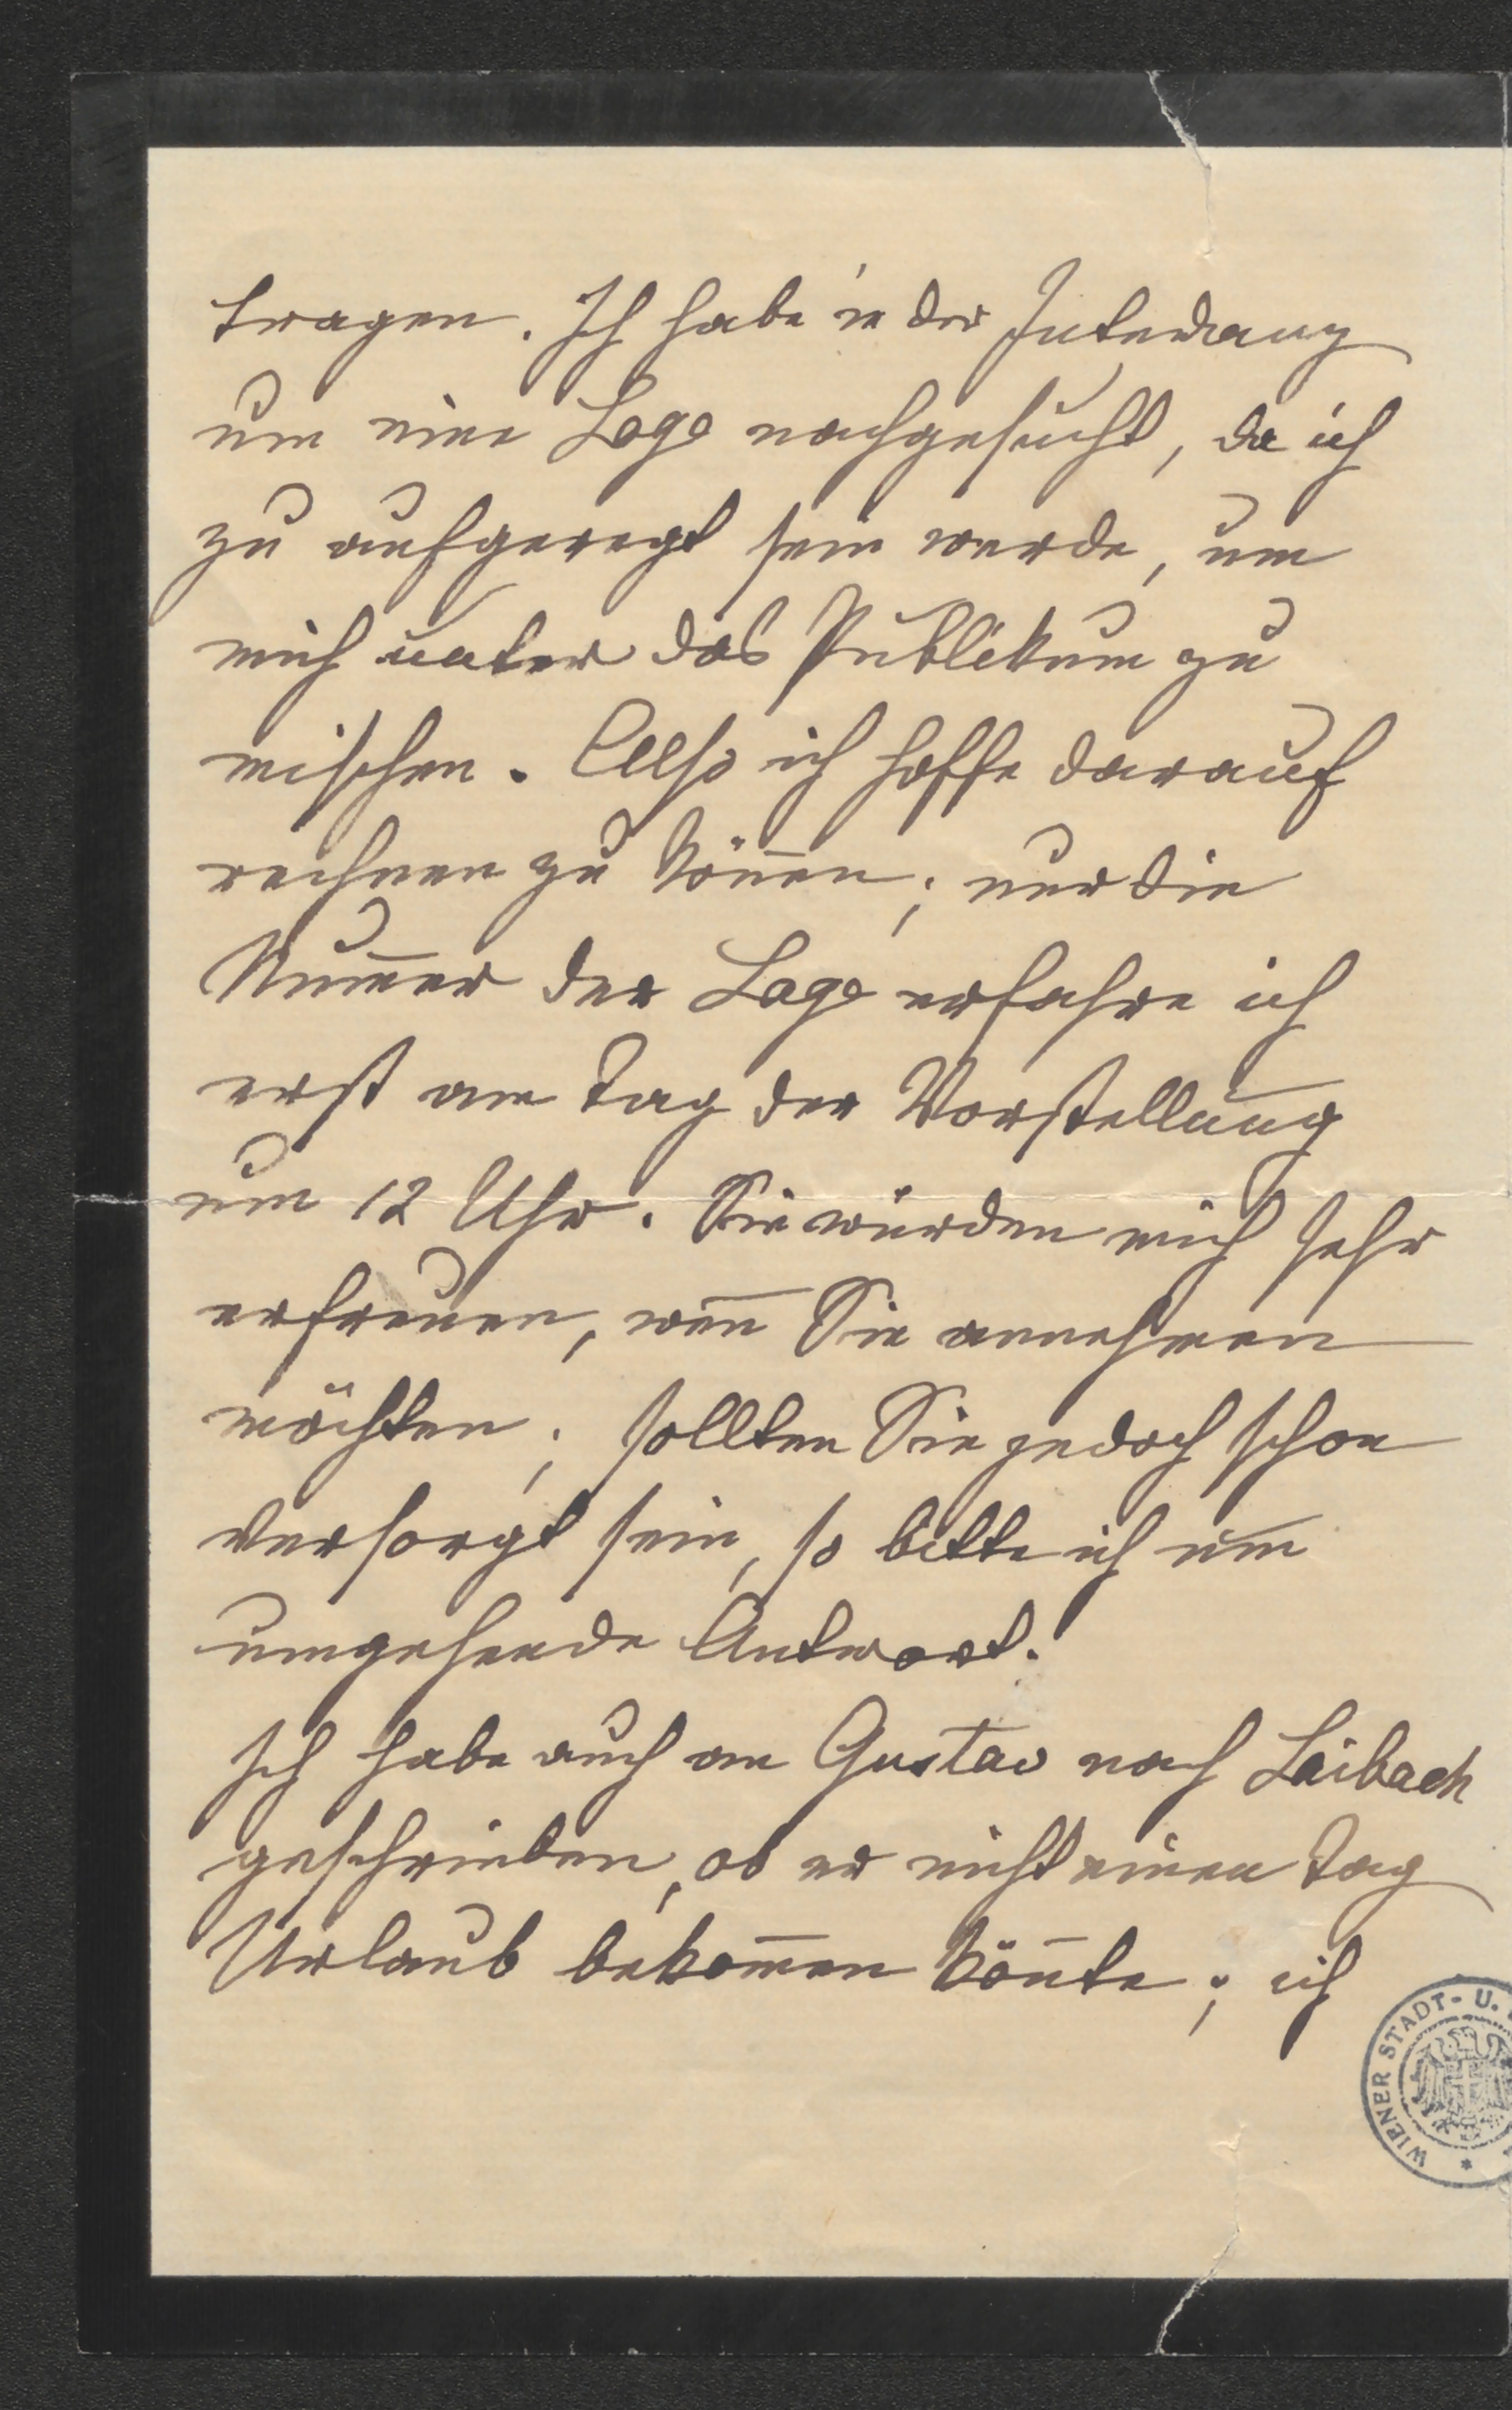 tragen. Ich habe in der Intendanz
um eine Loge nachgesucht, da ich
zu aufgeregt sein werde, um
mich unter das Publikum zu
mischen. Also ich hoffe darauf
rechnen zu kön̅en; nur die
Num̅er der Loge erfahre ich
erst am Tag der Vorstellung
um 12 Uhr. Sie würden mich sehr
erfreuen, wen̅ Sie annehmen
möchten; sollten Sie jedoch schon
versorgt sein, so bitte ich um
umgehende Antwort.
Ich habe auch an Gustav nach Laibach
geschrieben, ob er nicht einen Tag
Urlaub bekom̅en kön̅te; ich
WIENER STADT- U.